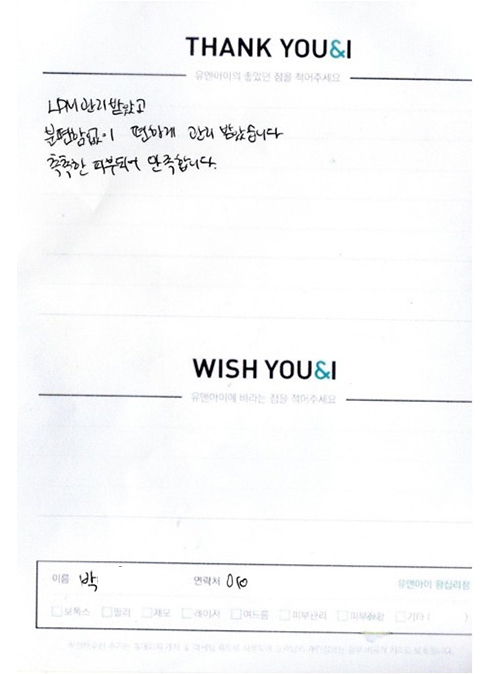 THANK YOU&I
유앤아이의 좋았던 점을 적어주세요
LDM관리받았고
불편함없이 편하게 관리 받았습니다
촉촉한 피부되어 만족합니다.
WISH YOU&I
유앤아이에 바라는 점을 적어주세요
이름 박 연락처 010 유앤아이 왕십리점
□보톡스 □필러 □제모 □레이저 □여드름 □피부관리 □피부 □기타 ( )